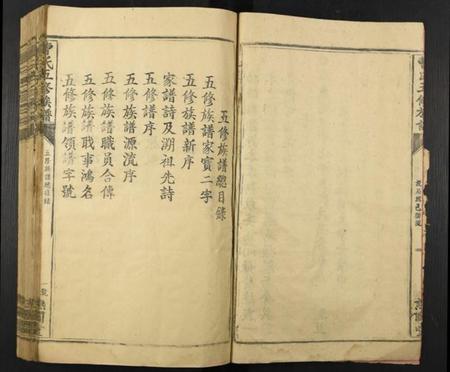 五修族譜總目錄
五修族譜家寶二字
五修族譜新序
家譜詩及溯祖先詩
五修譜序
五修族譜源流序
五修族譜職員合傳
五修族譜職事鴻名
五修族譜領譜字號
氏五修族譜